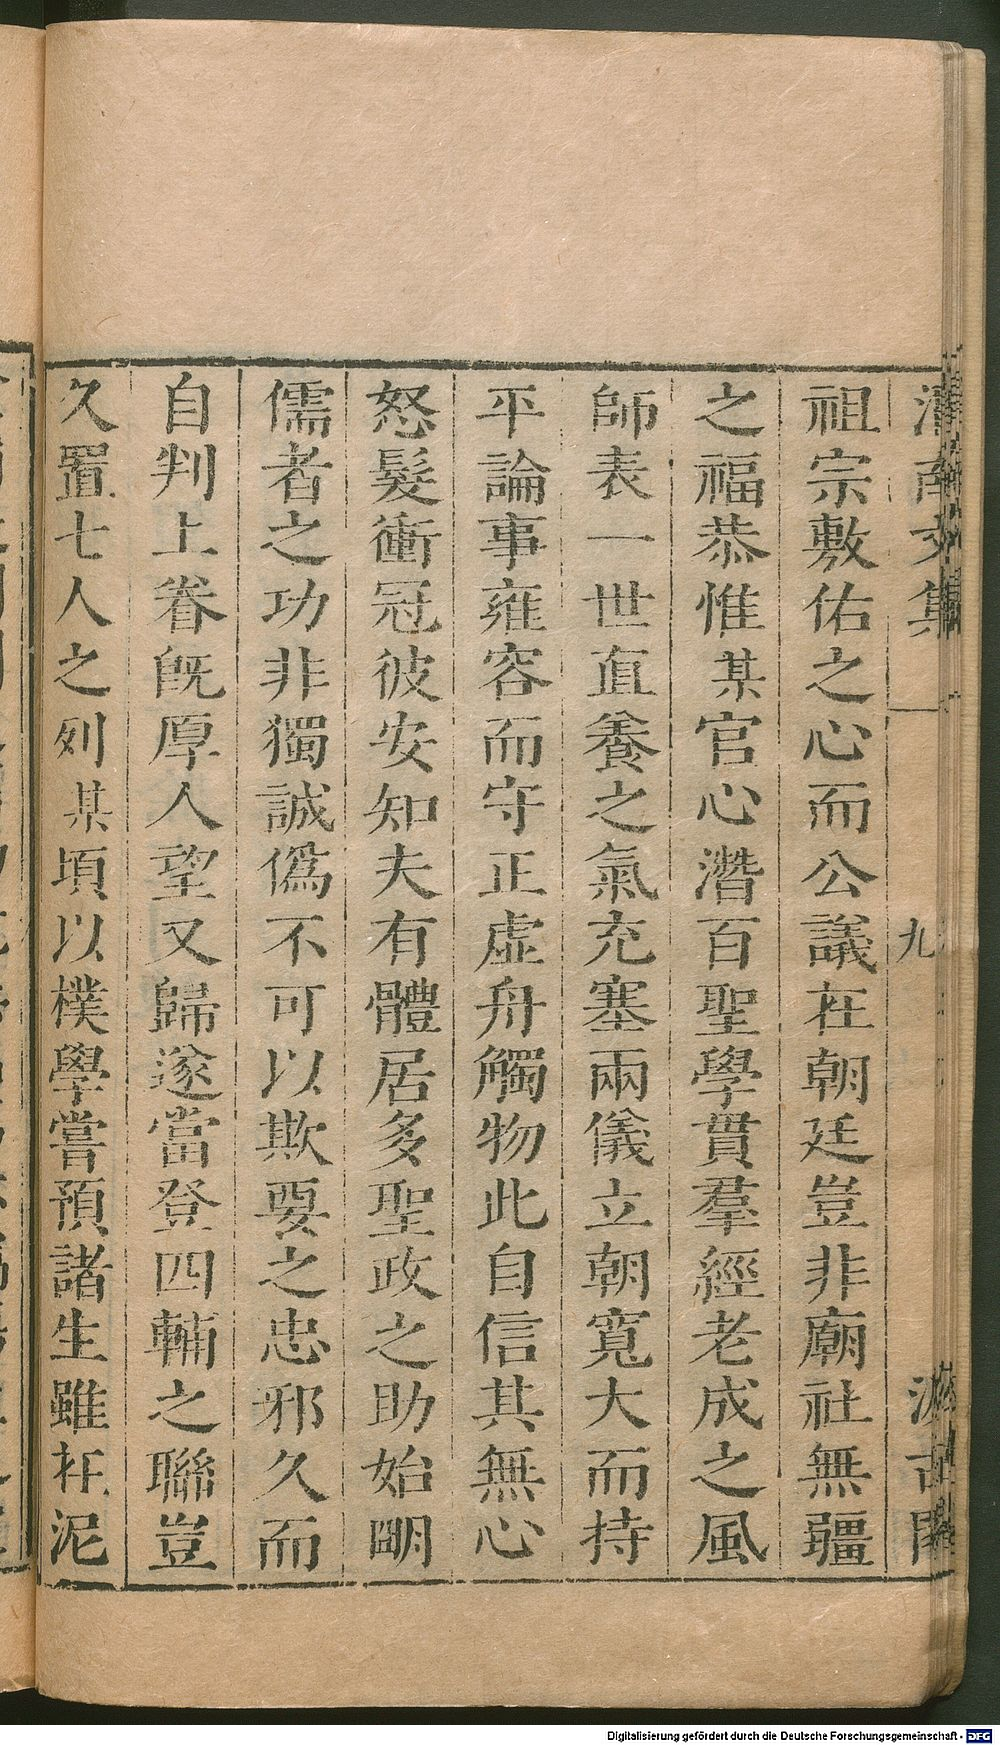 文集
九
祖宗敷佑之心而公議在朝廷豈非廟社無疆
之福恭惟某官心潛百聖學貫羣經老成之風
師表一世直養之氣充塞兩儀立朝寬大而持
平論事雍容而守正虛舟觸物此自信其無心
怒髮衝冠彼安知夫有體居多聖政之助始明
儒者之功非獨誠僞不可以欺要之忠邪久而
自判上眷旣厚人望又歸遂當登四輔之聯豈
久置七人之列某頃以樸學嘗預諸生雖在泥
Digitalisierung gefördert durch die Deutsche Forschungsgemeinschaft - DFG